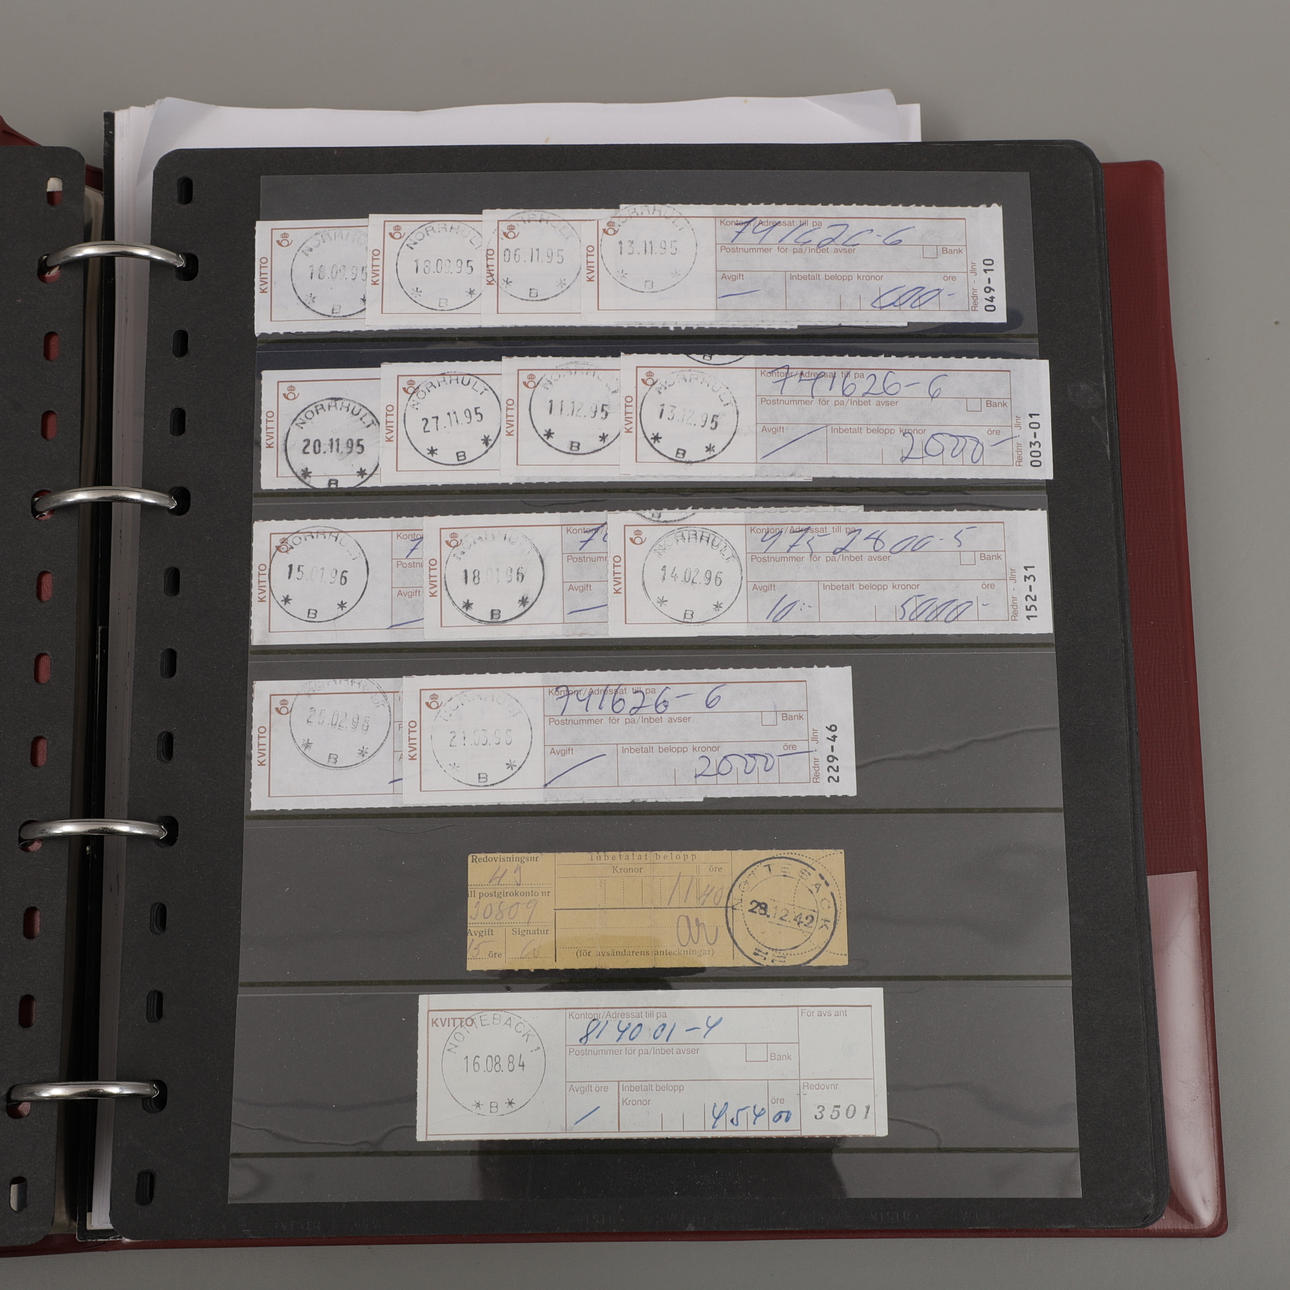 KVITTO
NORRHULT
18.09.95
B
KVITTO
NORRHULT
18.09.95
B
KVITTO
NORRHULT
06.11.95
B
KVITTO
NORRHULT
13.11.95
B
Kontonr/Adressat till pa
741626-6
Postnummer för pa/Inbet avser
Bank
Avgift
Inbetalt belopp kronor
öre
600-
Rednr - Jlnr
049-10
KVITTO
NORRHULT
20.11.95
B
KVITTO
NORRHULT
27.11.95
B
KVITTO
NORRHULT
11.12.95
B
KVITTO
NORRHULT
13.12.95
B
Kontonr/Adressat till pa
741626-6
Postnummer för pa/Inbet avser
Bank
Avgift
Inbetalt belopp kronor
öre
2000-
Rednr - Jlnr
003-01
KVITTO
NORRHULT
15.01.96
B
Kontonr
7
Postnum
Avgift
KVITTO
NORRHULT
18.01.96
B
Kontonr
74
Postnum
Avgift
KVITTO
NORRHULT
14.02.96
B
Kontonr/Adressat till pa
475 2800-5
Postnummer för pa/Inbet avser
Bank
Avgift
10:-
Inbetalt belopp kronor
öre
5000-
Rednr - Jlnr
152-31
KVITTO
NORRHULT
26.02.96
B
KVITTO
NORRHULT
21.03.96
B
Kontonr/Adressat till pa
741626-6
Postnummer för pa/Inbet avser
Bank
Avgift
Inbetalt belopp kronor
öre
2000-
Rednr - Jlnr
229-46
Redovisningsnr
49
ll postgirokonto nr
30809
Avgift
15 öre
Signatur
Inbetalat belopp
Kronor
öre
11 40
(för avsändarens anteckningar)
NOTTEBÄCK
29.12.42
KVITTO
NOTTEBÄCK 1
16.08.84
B
Kontonr/Adressat till pa
814001-4
Postnummer för pa/Inbet avser
Bank
Avgift öre
Inbetalt belopp
Kronor
öre
454 00
För avs ant
Redovnr
3501